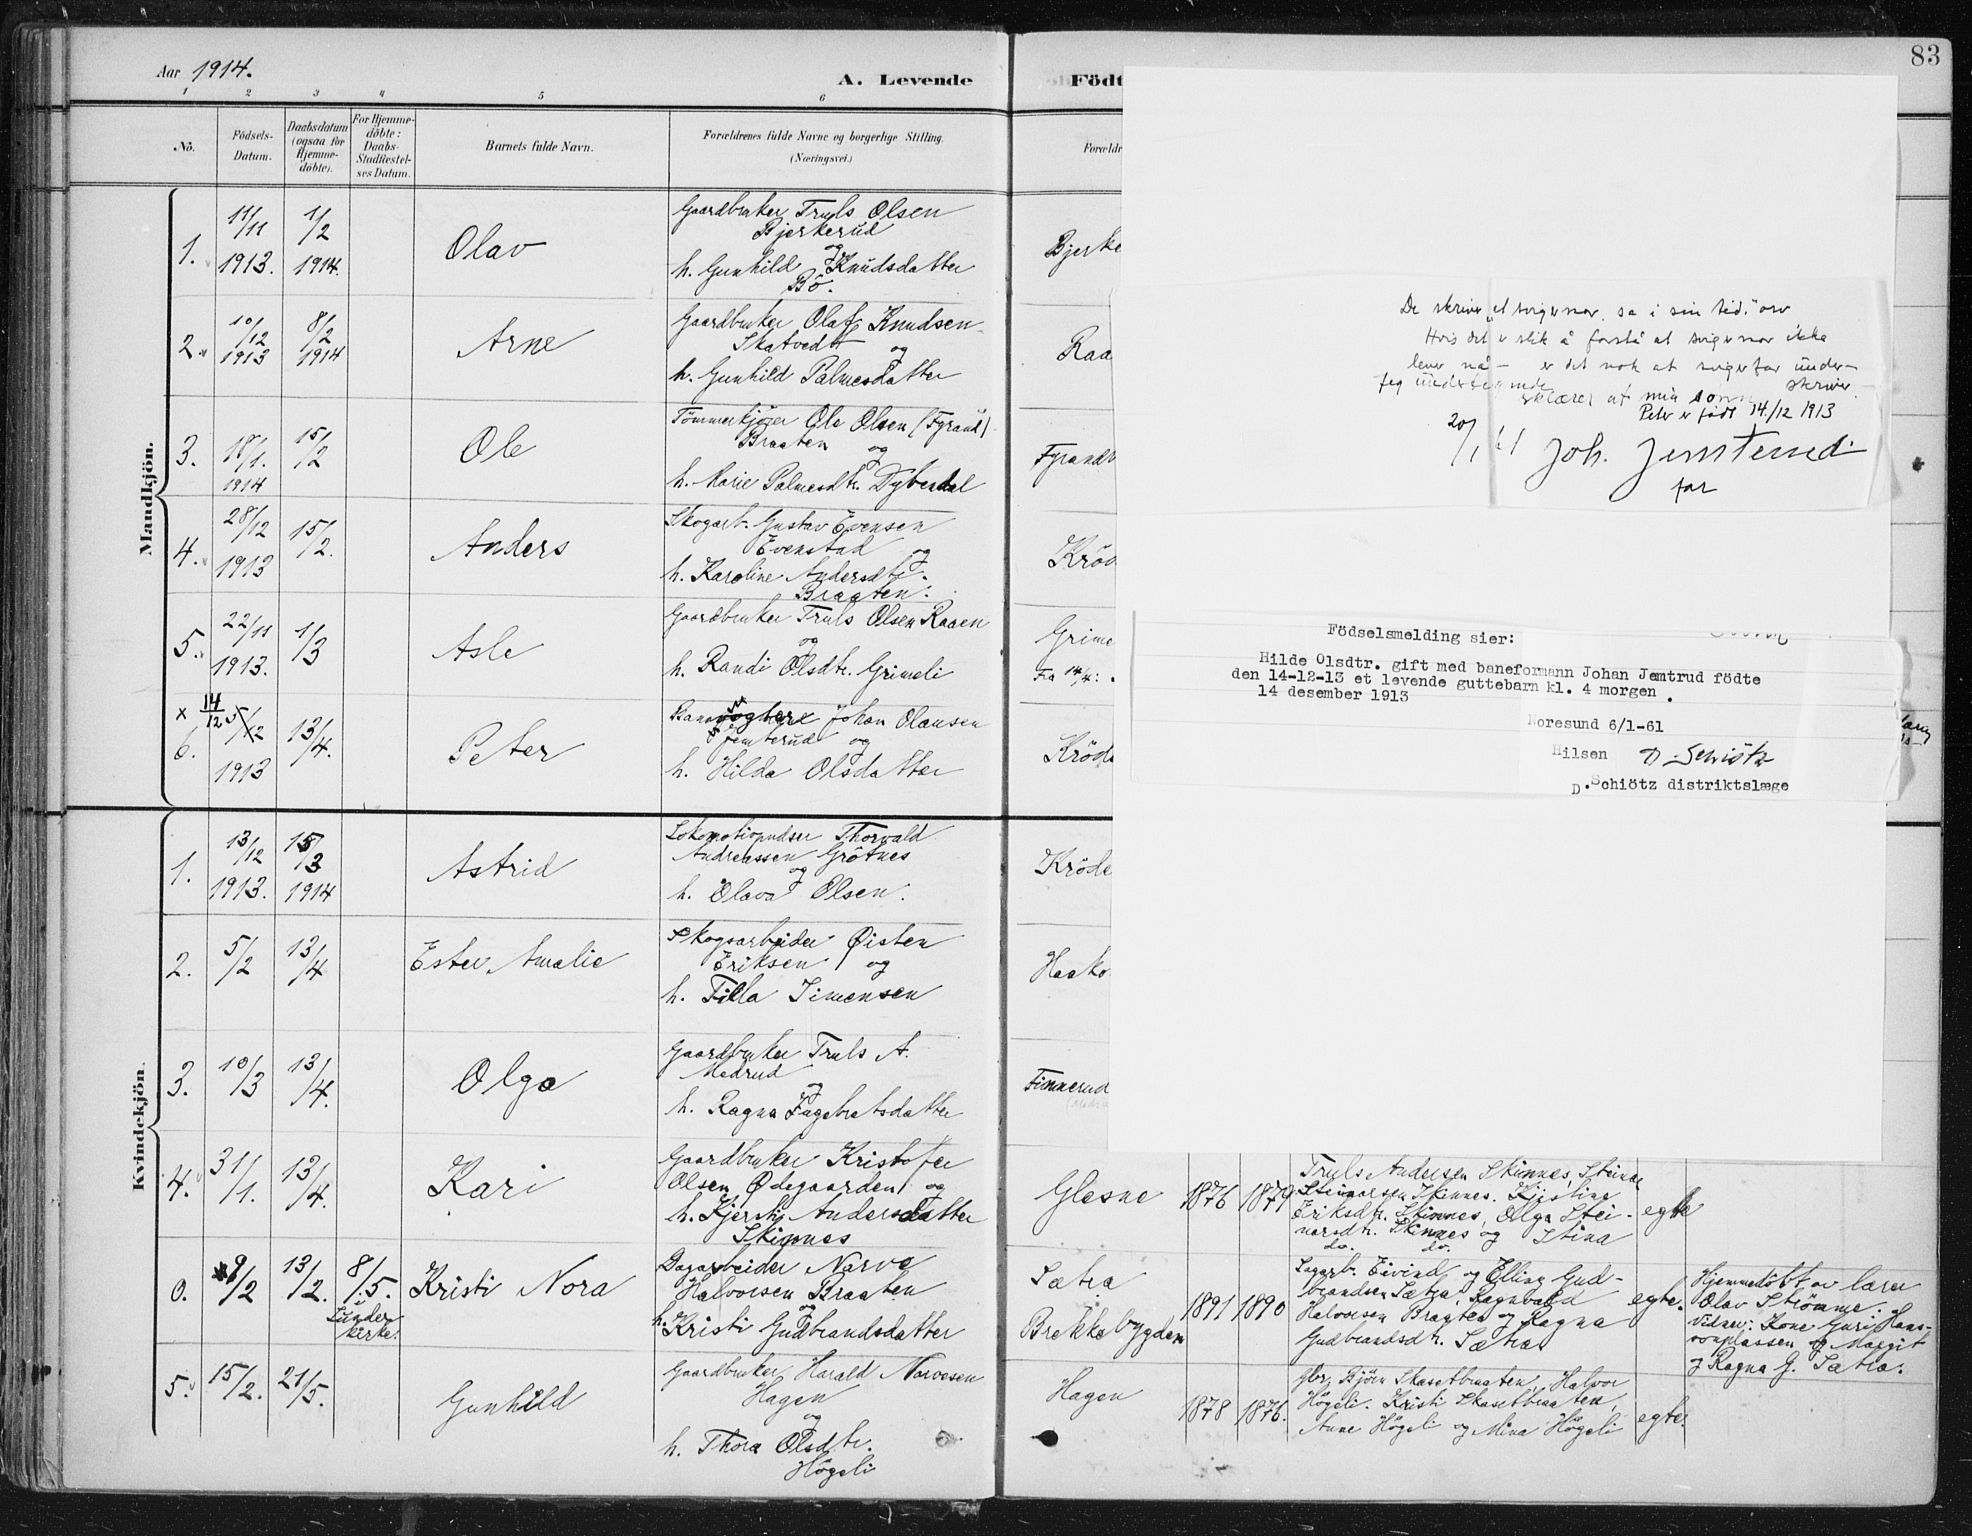 Aar 1914.
A. Levende
Födt
83
1 2 3 4 5 6
Nö.
Födsels-
Datum.
Daabsdatum
(ogsaa for
Hjemme-
döbte).
For Hjemme-
döbte:
Daabs-
Stadfæstel-
ses Datum.
Barnets fulde Navn.
Forældrenes fulde Navne og borgerlige Stilling.
(Næringsvei.)
Mandkjön.
1.
11/11
1913.
1/2
1914.
Olav
Gaardbruker Truls Olsen
Bjerkerud
og
h. Gunhild Knudsdatter
Bö.
Bjerke
2.
10/12
1913
8/2
1914
Arne
Gaardbruker Olaf Knudsen
Skatvedt og
h. Gunhild Palmesdatter
Raa
3.
18/1.
1914
15/2
Ole
Tömmerkjörer Ole Olsen (Fyrand)
Braaten og
h. Marie Palmesdtr. Dybendal
4.
28/12
1913
15/2.
Anders
Skogarb. Gustav Evensen
Evenstad og
h. Karoline Andersdtr.
Braaten.
Kröd
5.
22/11
1913.
1/3
Asle
Gaardbruker Truls Olsen Raaen
og
h. Randi Olsdtr. Grimeli
Grime
Fra 14/4:
x 14/12 5/12
6.
1913
13/4.
Peter
Johan Olausen
Jemterud og
h. Hilda Olsdatter
Kröd
De skriver "et svigermor sa i sin tid." osv
Hvis det er slik å forstå at svigermor ikke
lever nå – er det nok at svigerfar under-
skriver.
Jeg undertegnede
erklærer at min sönn
Peter er født 14./12 1913
20/1 61 Joh. Jemterud
far
Födselsmelding sier:
Hilde Olsdtr. gift med baneformann Johan Jemtrud födte
den 14-12-13 et levende guttebarn kl. 4 morgen .
14 desember 1913
Noresund 6/1-61
Hilsen D. Schiötz
D. Schiötz distriktslæge
Kvindekjön.
1.
13/12
1913.
15/3
1914
Astrid
Lokomotivpudser Thorvald
Andreassen Grötnes
og
h. Olava Olsen.
Kröde
2.
5/2
13/4
Ester Amalie
Skogsarbeider Øisten
Eriksen og
h. Tilla Simensen
Haako
3.
10/3
13/4.
Olga
Gaardbruker Truls A.
Medrud
og
h. Ragna Fagebratsdatter
Finnerud
4.
31/1.
13/4.
Kari
Gaardbruker Kristofer
Olsen Ødegaarden og
h. Kjersti Andersdatter
Skinnes
Glesne
1876 1879
Truls Andersen Skinnes, Steinar
Steinarsen Skinnes. Kjestine
Eriksdtr. Skinnes, Olga Stei-
narsdtr. Skinnes og Stina
do. do.
egte
0.
9/2
13/2.
8/5.
i
Gunhild
Kristi Nora
Dagarbeider Narve
Halvorsen Braaten
og
h. Kristi Gudbrandsdatter
Sætra
Brekkebygden
1891 1890
Sagarb. Eivind og Elling Gud-
brandsen Sætra, Ragnvald
Halvorsen Braaten og Ragna
Gudbrandsdtr. Sætra
egte.
Hjemmedöbt av lærer
Olav Strömme.
Vidner: Kone Guri Hans-
og Margit
og Ragna G. Sætra.
5.
15/2.
21/5.
Gaardbruker Harald Narvesen
Hagen
og
h. Thora Olsdtr.
Högeli
Hagen
1878 1876.
Gbr. Björn Skasetbraaten, Halvor
Högeli. Kristi Skasetbraaten,
Anne Högeli og Mina Högeli
egte.